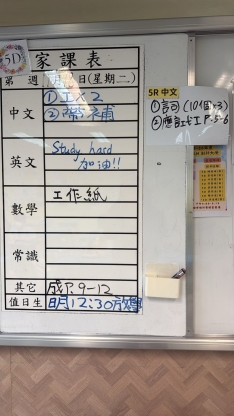 5D
家課表
第 週 月 日(星期二)
中文
①工×2
②帶補
英文
Study hard
加油!!
數學
工作紙
常識
其它
成P.9-12
值日生
明12:30放學
5R 中文
①詞(10個×3)
②應試工P.5-6